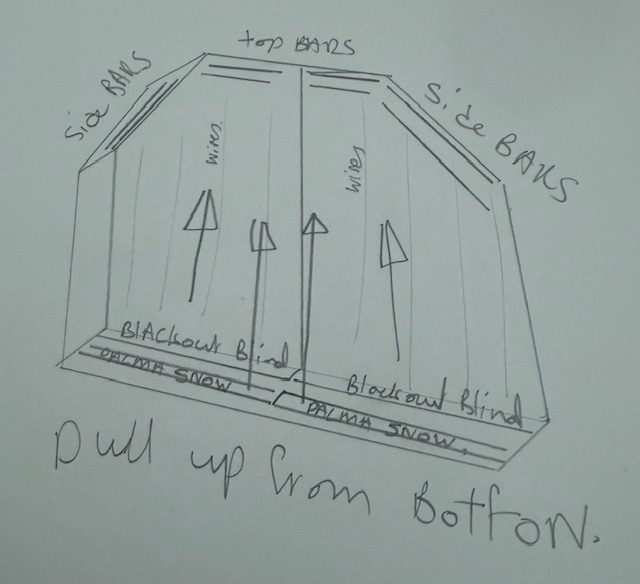 top BARS
Side BARS
Side BARS
wires
wires
BlAckout Blind
Blackout Blind
PALMA SNOW
PALMA SNOW.
Pull up from Botton.